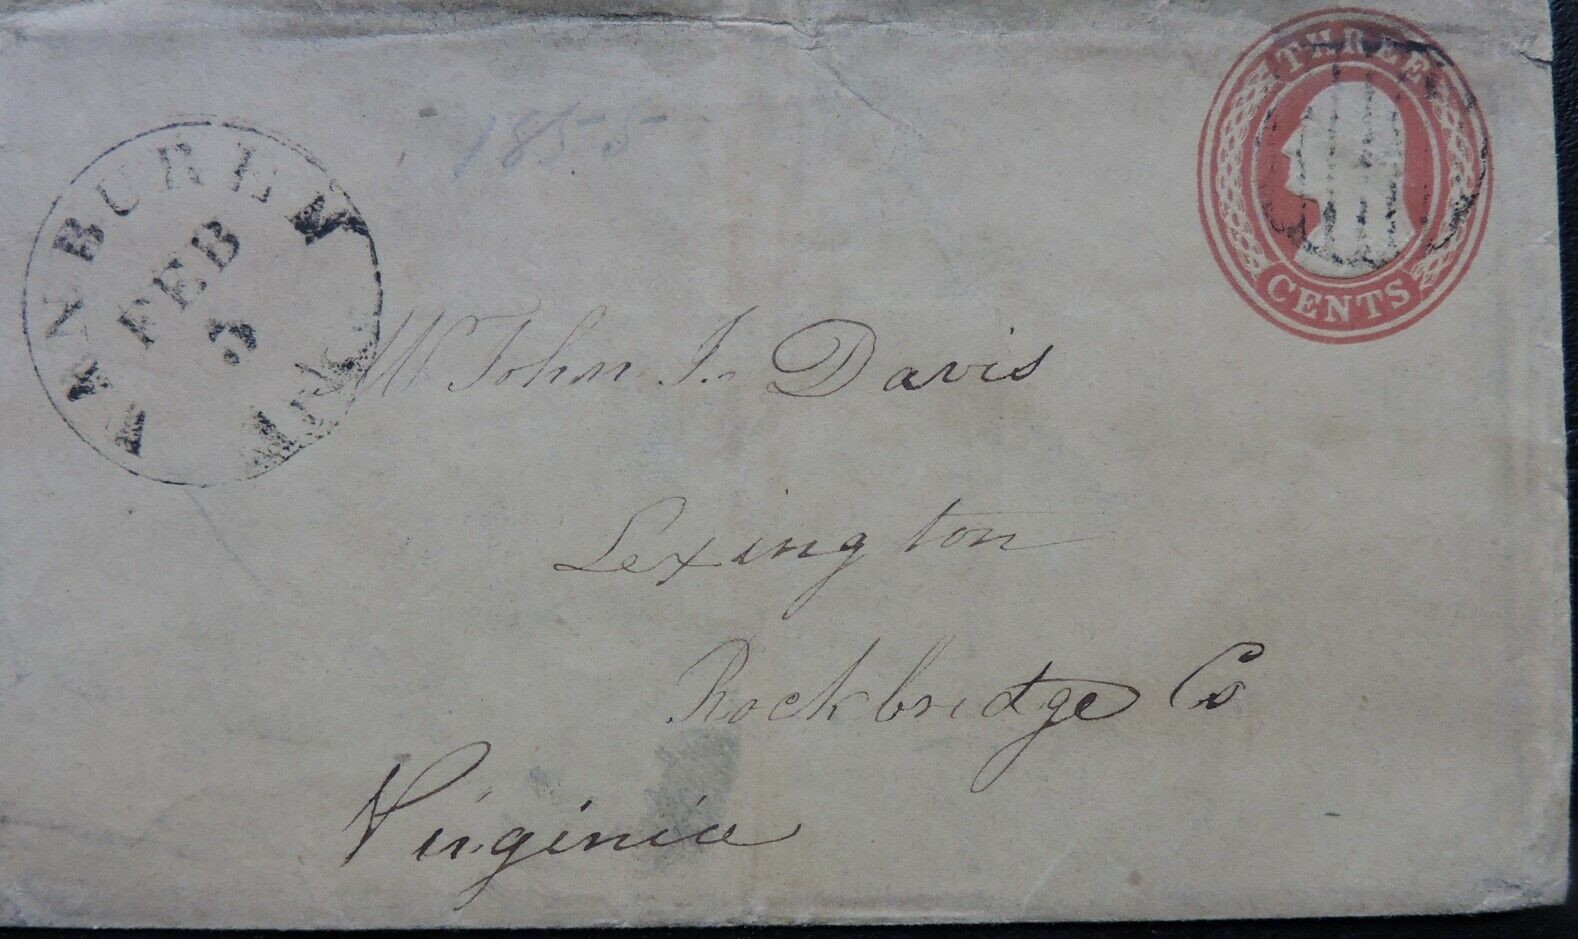 VANBUREN
FEB
5
Ark.
1855
THREE
CENTS
Mr John J. Davis
Lexington
Rockbridge Co
Virginia